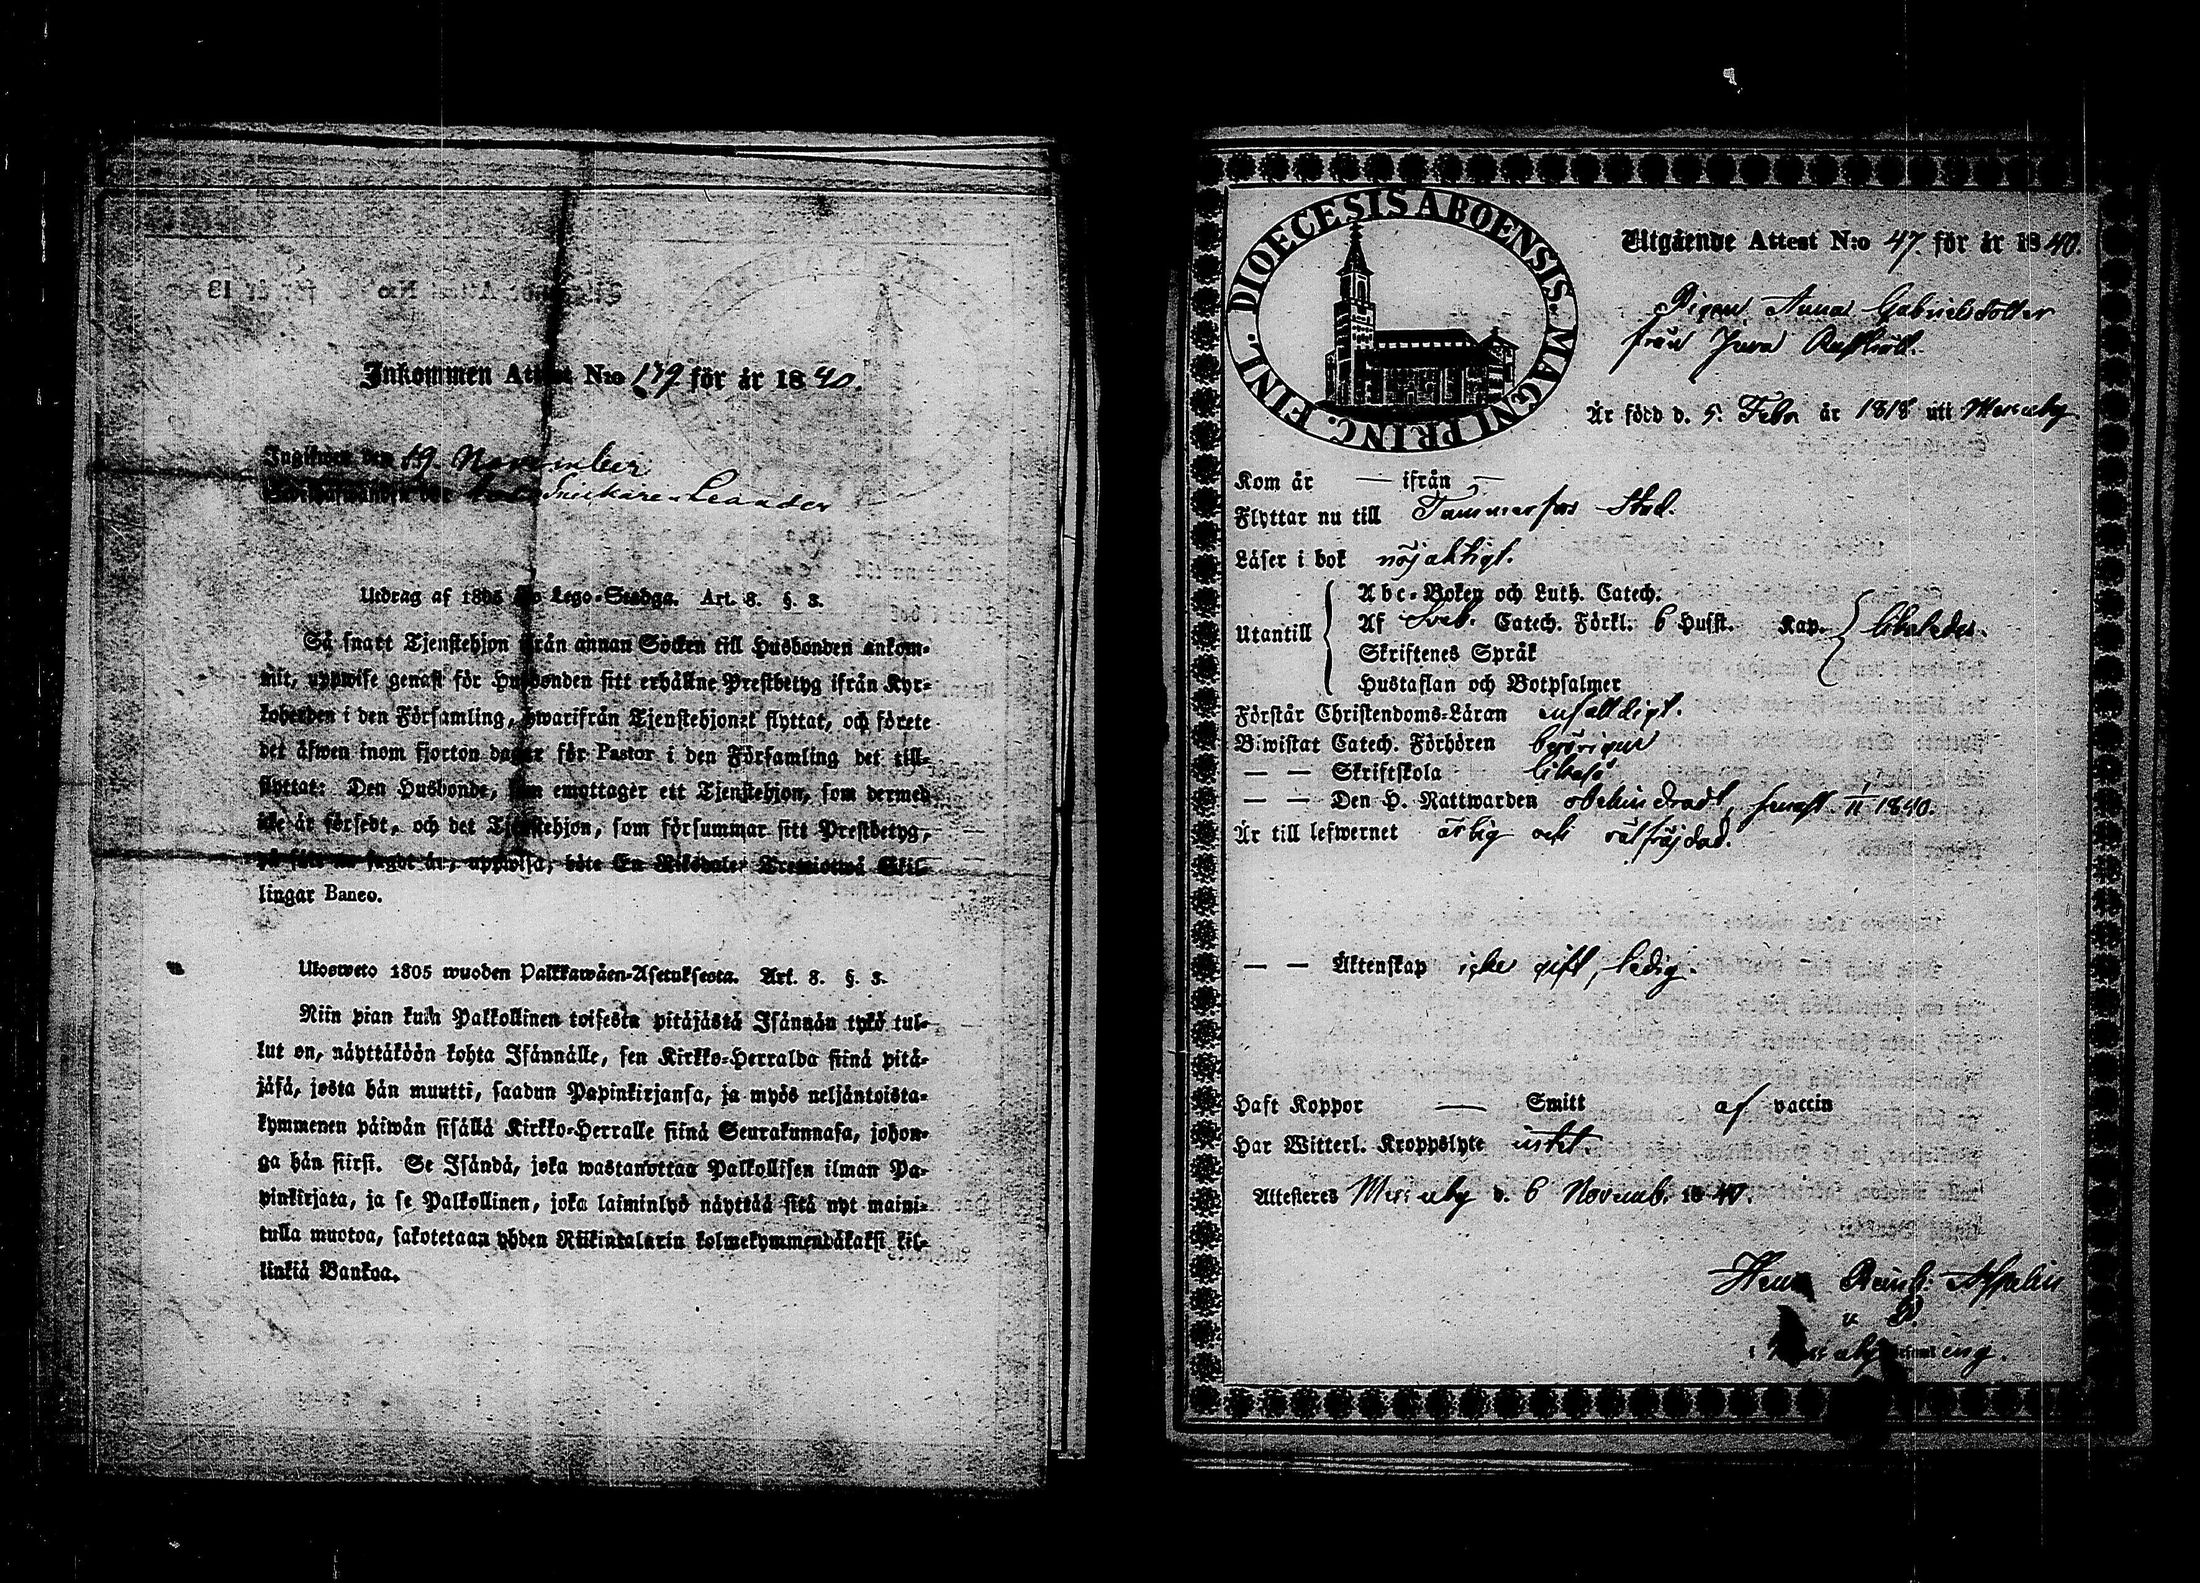 Inkommen Attest N:o 139 för år 1840.
Ingifwen den 19. November
Snickaren Leander
Utdrag af 1805 Lego-Stadga. Art. 8. §. 3.
Så snart Tjenstehjon ifrån annan Socken till Husbonden ankom-
mit, uppwise genast för Husbonden sitt erhållne Prestbetyg ifrån Kyr-
koherden i den Församling, hwarifrån Tjenstehjonet flyttat, och förete
det äfwen inom fjorton dagar för Pastor i den Församling det till-
flyttat: Den Husbonde, som emottager ett Tjenstehjon, som dermed
icke är försedt, och det Tjenstehjon, som försummar sitt Prestbetyg,
på sätt nu sagdt är, uppwisa, böte En Riksdaler Trettiotwå Skil-
lingar Banco.
Ulosweto 1805 wuoden Palkkawäen-Asetuksesta. Art. 8. §. 3.
Niin pian kuin Palkollinen toisesta pitäjästä Isännän tykö tul-
lut on, näyttäköön kohta Isännälle, sen Kirkko-Herralda siinä pitä-
jäsä, josta hän muutti, saadun Papinkirjansa, ja myös neljäntoista-
kymmenen päiwän sisällä Kirkko-Herralle siinä Seurakunnasa, johon-
ga hän siirsi. Se Isändä, joka wastanottaa Palkollisen ilman Pa-
pinkirjata, ja se Palkollinen, joka laiminlyö näyttää sitä nyt maini-
tulla muotoa, sakotetaan yhden Riikintalarin kolmekymmendäkaksi kil-
linkiä Bankoa.
DIOECESIS ABOENSIS. MAGNI PRINC. FINL.
Utgående Attest N:o 47 för år 1840.
Pigan Anna Gabrielsdotter
från Jura Rusthåll.
Är född d. 5. Febr. år 1818 uti Messuby
Kom år — ifrån —
Flyttar nu till Tammerfors Stad.
Läser i bok nöjaktigt.
Utantill
Abc-Boken och Luth. Catech.
Af Sveb. Catech. Förkl. 6 Husst. Kap.
Skriftenes Språk
Hustaflan och Botpsalmer
likaledes.
Förstår Christendoms-Läran enfalldigt.
Biwistat Catech. Förhören behörigen
— — Skriftskola likaså
— — Den H. Nattwarden obehindradt, senast 1/11 1840.
Är till lefwernet ärlig och rättfrejdad.
— — Äktenskap icke gift, ledig.
Haft Koppor — Smitt af vaccin
Har Witterl. Kroppslyte intet.
Attesteras Messuby d. 6 Novemb. 1840.